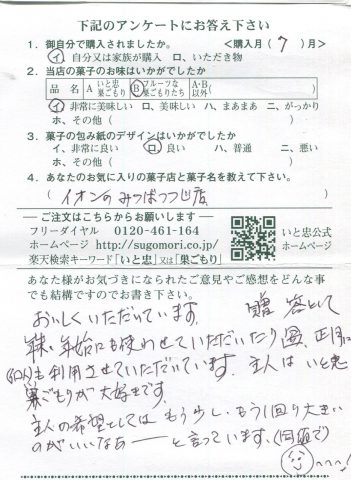 下記のアンケートにお答え下さい
1. 御自分で購入されましたか。 <購入月( 7 )月>
イ、自分又は家族が購入 ロ、いただき物
2. 当店の菓子のお味はいかがでしたか
品 名 A いと忠巣ごもり B フルーツな巣ごもりたち A・B以外( )
イ、非常に美味しい ロ、美味しい ハ、まあまあ ニ、がっかり
ホ、その他( )
3. 菓子の包み紙のデザインはいかがでしたか
イ、非常に良い ロ、良い ハ、普通 ニ、悪い
ホ、その他( )
4. あなたのお気に入りの菓子店と菓子名を教えて下さい。
( イオンの みつばつつじ店 )
― ご注文はこちらからお願いします ―
フリーダイヤル 0120-461-164
ホームページ http://sugomori.co.jp/
楽天検索キーワード「いと忠」又は「巣ごもり」
いと忠公式
ホームページ
あなた様がお気づきになられたご意見やご感想をどんな事
でも結構ですのでお書き下さい。
おいしくいただいています。 贈答として
年末、年始にも使わせていただいたり 正月に
も利用させていただいています。主人は いと忠
巣ごもりが大好きです。
主人の希望としては もう少し・もう1回り大きい
のがいいなあ―― と言っています。(同額で)
〜〜!